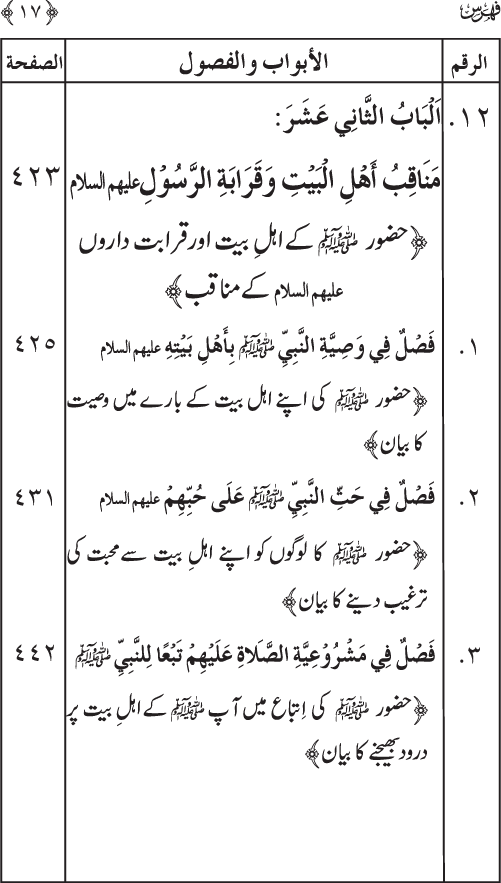 فہرس ﴿١٧﴾
الرقم الأبواب والفصول الصفحة
١٢. اَلْبَابُ الثَّانِي عَشَرَ:
مَنَاقِبُ أَهْلِ الْبَيْتِ وَقَرَابَةِ الرَّسُوْلِ عليهم السلام ٤٢٣
﴿حضور ﷺ کے اہلِ بیت اور قرابت داروں
علیهم السلام کے مناقب﴾
١. فَصْلٌ فِي وَصِيَّةِ النَّبِيِّ ﷺ بِأَهْلِ بَيْتِهِ عليهم السلام ٤٢٥
﴿حضور ﷺ کی اپنے اہل بیت کے بارے میں وصیت
کا بیان﴾
٢. فَصْلٌ فِي حَثِّ النَّبِيِّ ﷺ عَلَى حُبِّهِمْ عليهم السلام ٤٣١
﴿حضور ﷺ کا لوگوں کو اپنے اہلِ بیت سے محبت کی
ترغیب دینے کا بیان﴾
٣. فَصْلٌ فِي مَشْرُوْعِيَّةِ الصَّلَاةِ عَلَيْهِمْ تَبْعًا لِلنَّبِيِّ ﷺ ٤٤٢
﴿حضور ﷺ کی اِتباع میں آپ ﷺ کے اہلِ بیت پر
درود بھیجنے کا بیان﴾